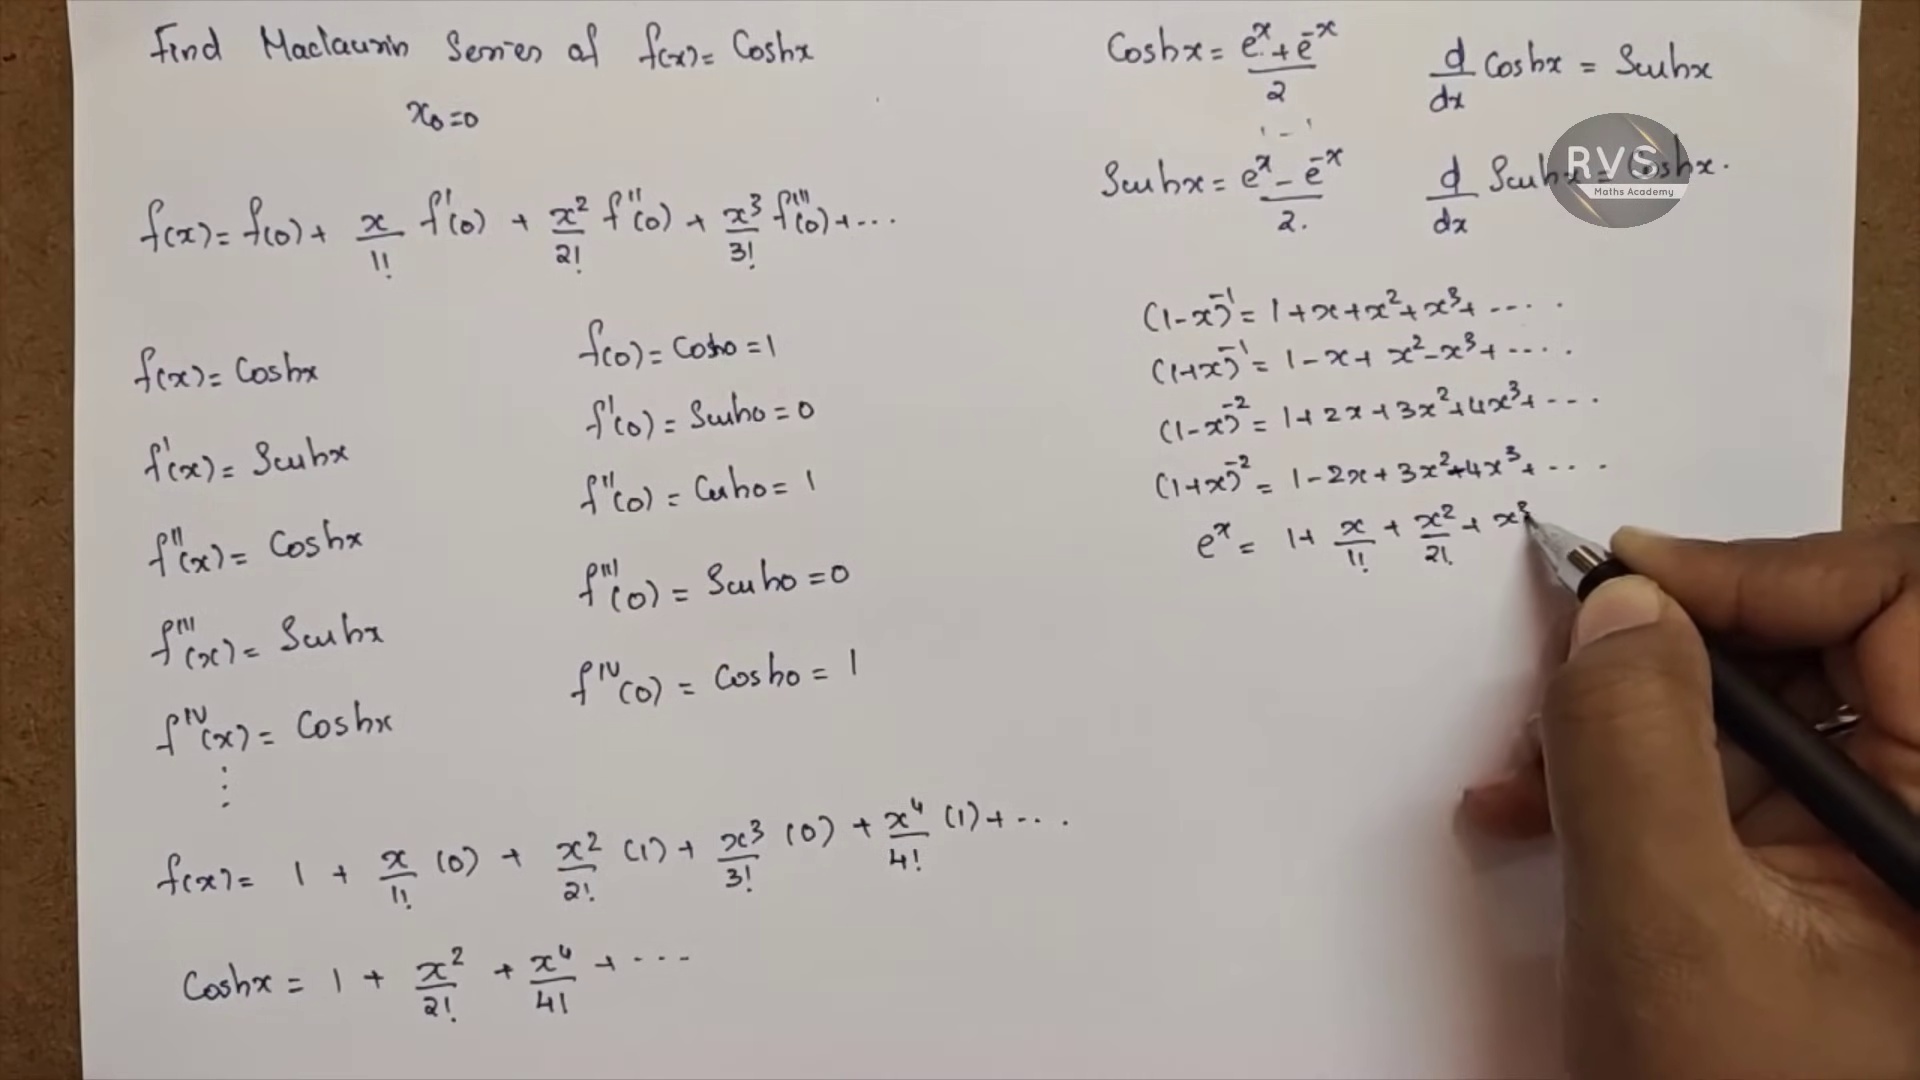 Find Maclaurin Series of f(x) = Coshx
x₀=0
f(x) = f(0) + x/1! f'(0) + x²/2! f''(0) + x³/3! f'''(0) + ...
f(x) = Coshx
f(0) = Cosh0 = 1
f'(x) = Sinhx
f'(0) = Sinh0 = 0
f''(x) = Coshx
f''(0) = Cosh0 = 1
f'''(x) = Sinhx
f'''(0) = Sinh0 = 0
f^IV(x) = Coshx
f^IV(0) = Cosh0 = 1
⋮
f(x) = 1 + x/1! (0) + x²/2! (1) + x³/3! (0) + x⁴/4! (1) + ...
Coshx = 1 + x²/2! + x⁴/4! + ...
Coshx = (e^x + e^-x)/2
d/dx Coshx = Sinhx
Sinhx = (e^x - e^-x)/2.
d/dx Sinhx = Coshx.
RVS
Maths Academy
(1-x)^-1 = 1+x+x²+x³+ ....
(1+x)^-1 = 1-x+x²-x³+ ....
(1-x)^-2 = 1+2x+3x²+4x³+ ...
(1+x)^-2 = 1-2x+3x²-4x³+ ...
e^x = 1+ x/1! + x²/2! + x³